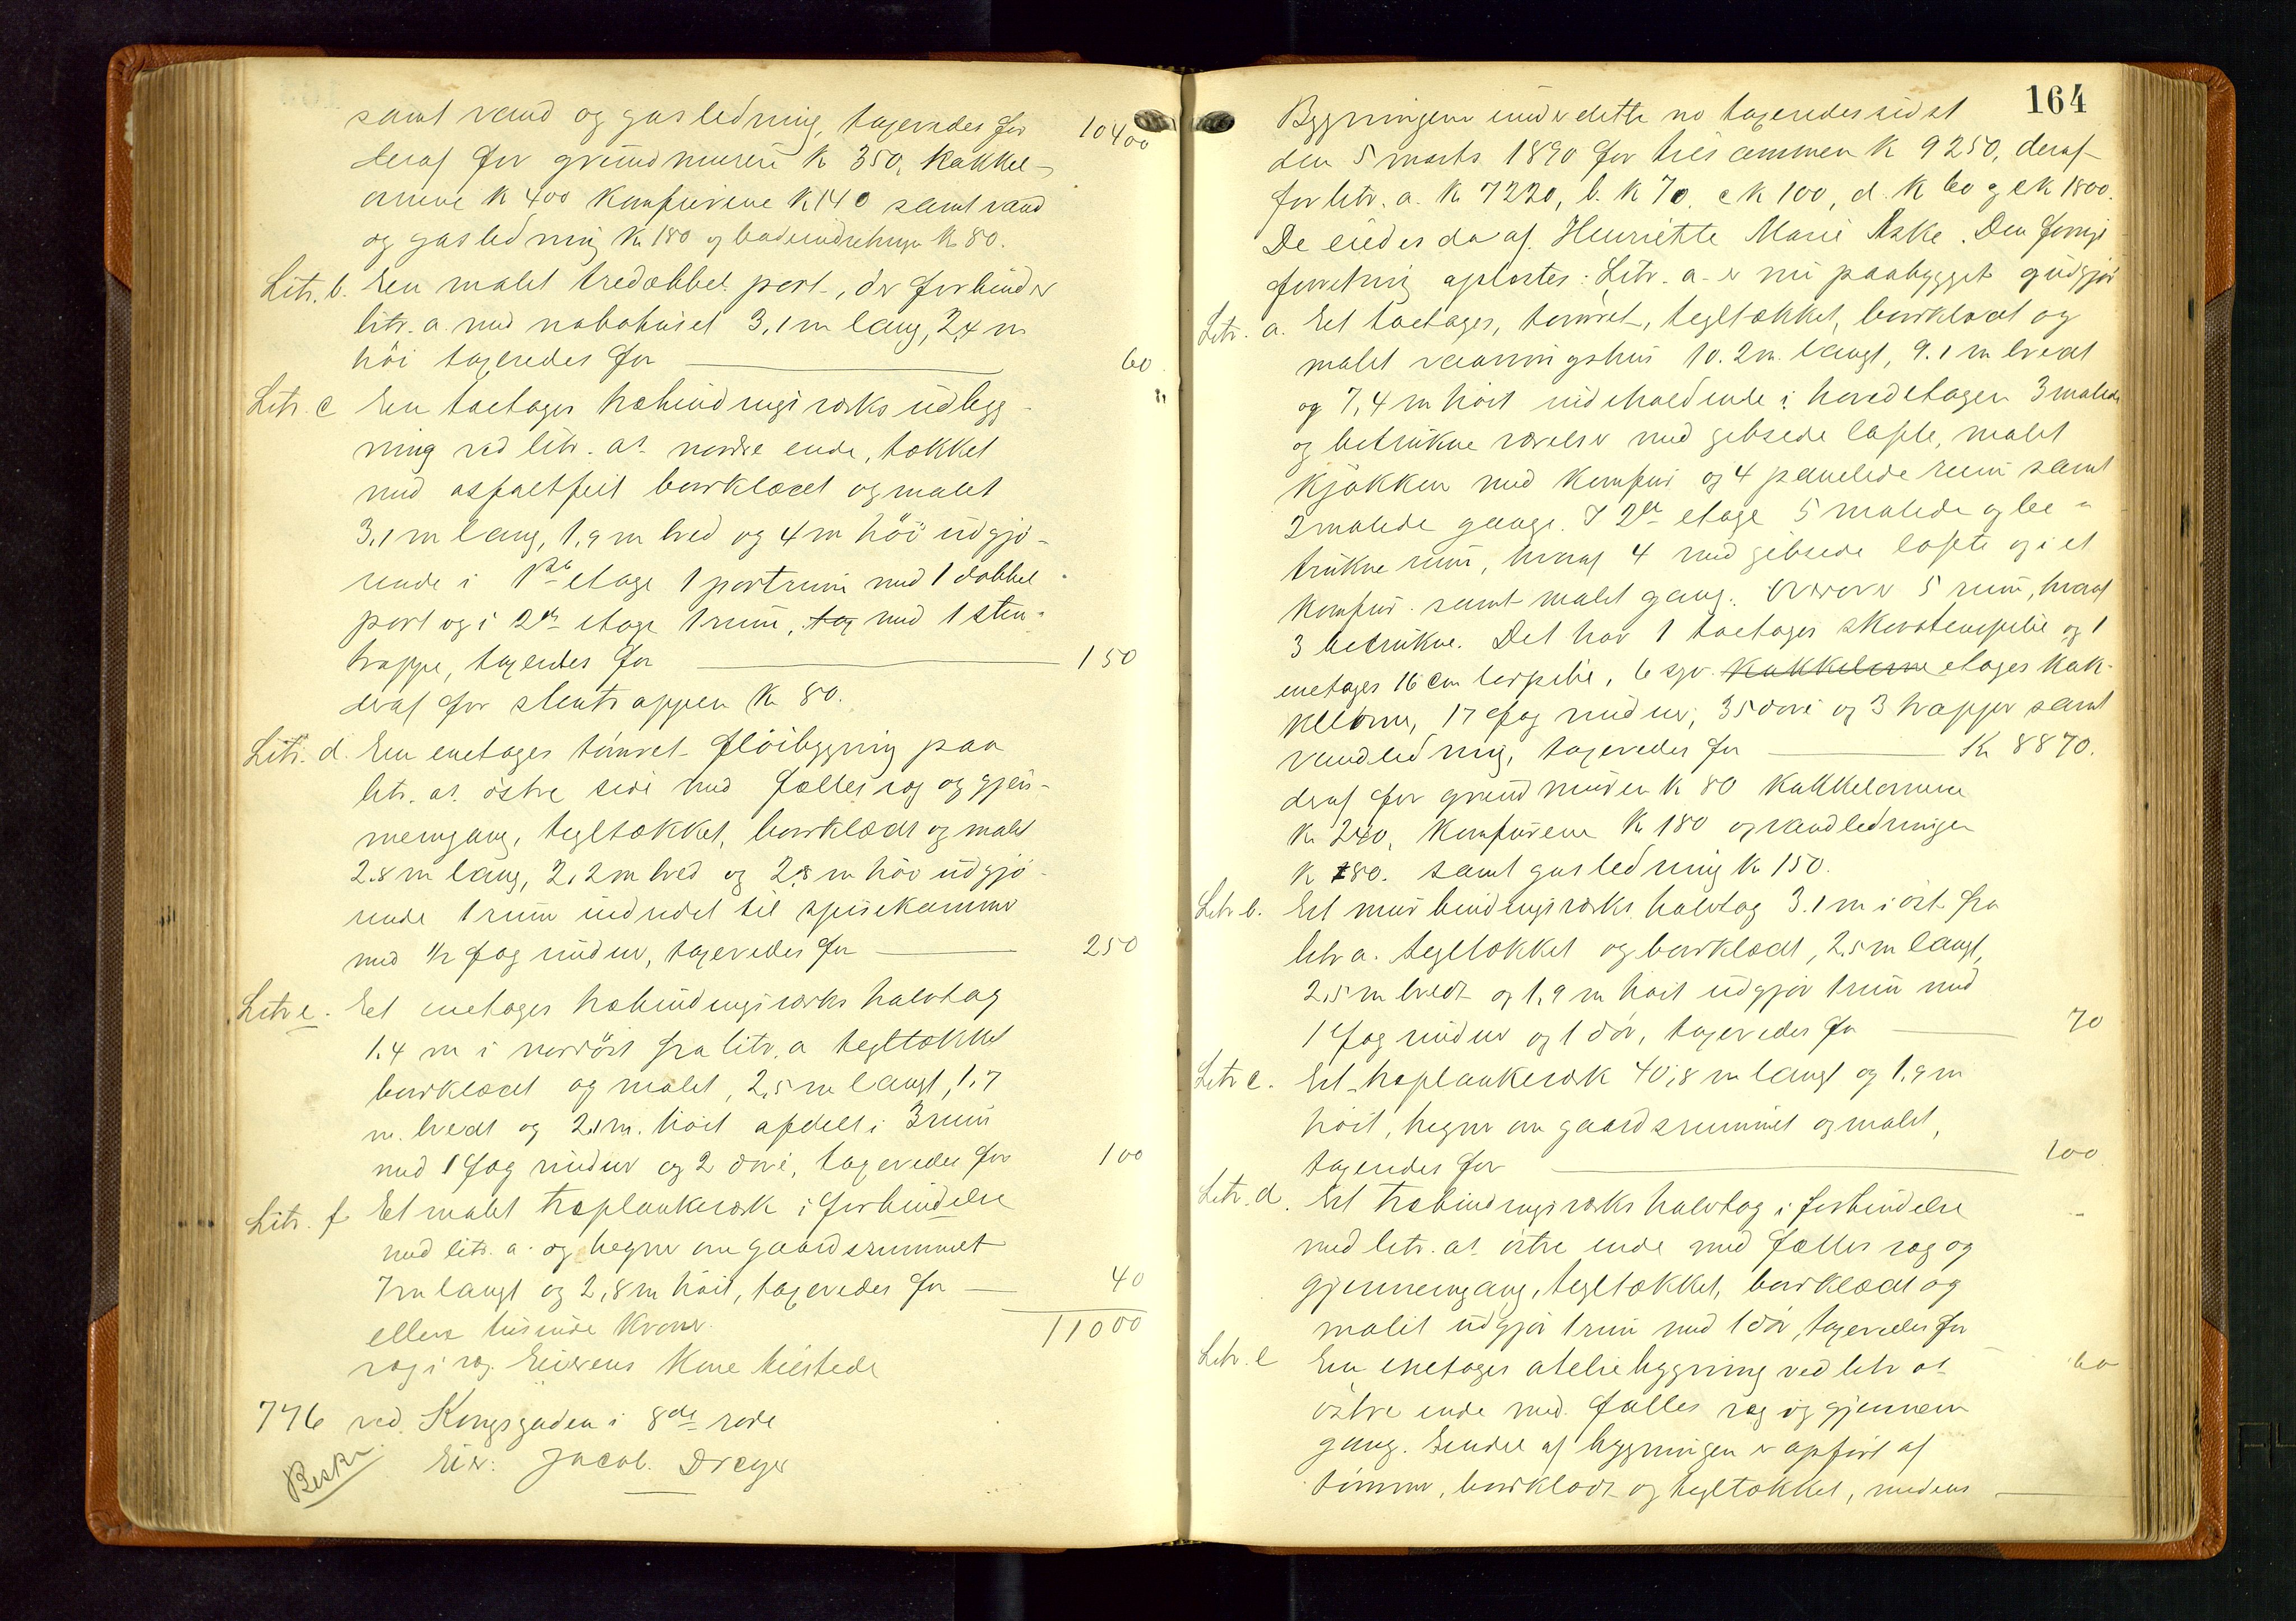 samt vand og gasledning, taxeredes for 10400
deraf for grundmuren k 350, kakkel-
ovnene k 400 komfurerne k 140 samt vand
og gasledning k 180 og badeindretningen k 80.
Litr. b. En malet trædobbel port, der forbinder
litr. a med nabohuset 3,1 m lang, 2,4 m
höi taxeredes for 60
Litr. c En toetages træbindingsværks udbygg-
ning ved litr. a's nordre ende, tækket
med asfaltfilt bordklædt og malet
3,1 m lang, 1,9 m bred og 4 m höi udgjö-
rende i 1ste etage 1 portrum med 1 dobbel
port og i 2den etage 1 rum, tag med 1 sten-
trappe, taxeredes for 150
deraf for stentrappen K 80.
Litr. d. En enetages tömret flöibygning paa
litr. a's östre side med fælles væg og gjen-
nemgang, tegltækket, bordklædt og malet
2.8 m lang, 2,2 m bred og 2,8 m höi udgjö-
rende 1 rum indredet til spisekammer
med ½ fag vinduer, taxeredes for 250
Litr e. Et enetages træbindingsværks halvtag
1.4 m i nordöst fra litr. a tegltækket
bordklædt og malet, 2,5 m langt, 1,7
m. bredt og 2,1 m. höit afdelt i 3 rum
med 1 fag vinduer og 2 döre, taxeredes for 100
Litr. f Et malet træplankeværk i forbindelse
med litr. a. og hegner om gaardsrummet
7 m langt og 2,8 m höit, taxeredes for 40
elleve tusinde kroner. 11000
væg i væg. Eierens kone tilstede
776 ved Kongsgaden i 8de rode
Beskr. Eier: Jacob Dreyer
164
Bygningerne under dette no taxeredes sidst
den 5 marts 1890 for tilsammen k 9250, deraf
for litr. a. k 7220, b. k 70, c k 100, d. k 60 og e k 1800.
De eiedes da af Henriette Marie Aske. Den forrige
forretning oplæstes: Litr. a er nu paabygget og udgjör
Litr. a. Et toetages, tömret, tegltækket, bordklædt og
malet vaaningshus 10.2 m. langt, 9.1 m bredt
og 7,4 m höit indeholdende i hovedetagen 3 malede
og betrukne værelser med gibsede lofte, malet
kjökken med komfur og 4 panelede rum samt
2 malede gange. I 2den etage 5 malede og be-
trukne rum, hvoraf 4 med gibsede lofte og i et
komfur samt malet gang. Ovenover 5 rum, hvoraf
3 betrukne. Det har 1 toetages skorstenspibe og 1
enetages 16 cm lerpibe, 6 sgv. kakkelovne etages kak-
kelovne, 17 fag vinduer, 35 döre og 3 trapper samt
vandledning, taxeredes for Kr 8870.
deraf for grundmuren k 80 kakkelovnene
k 240, komfurerne k 180 og vandledningen
k 180. samt gasledning k 150.
Litr b. Et mur bindingsværks halvtag 3.1 m i öst fra
litr a. tegltækket og bordklædt, 2,5 m langt,
2,5 m bredt og 1,9 m höit udgjör 1 rum med
1 fag vinduer og 1 dör, taxeredes for 70
Litr c. Et træplankeværk 40,8 m langt og 1,9 m
höit, hegner om gaardsrummet og malet,
taxeredes for 100
Litr. d. Et træbindingsværks halvtag i forbindelse
med litr. a's östre ende med fælles væg og
gjennemgang, tegltækket, bordklædt og
malet udgjör 1 rum med 1 dör, taxeredes for
Litr. e En enetages atelierbygning ved litr a's 60
östre ende med fælles væg og gjennem
gang. Endel af bygningen er opfört af
tömmer, bordklædt og tegltækket, medens